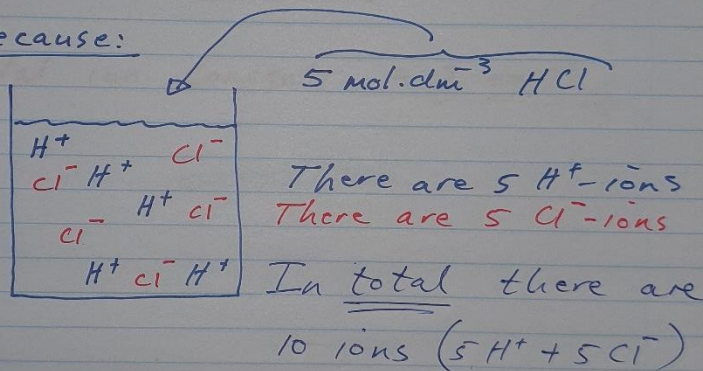 ecause:
5 mol.dm⁻³ HCl
H⁺ Cl⁻
Cl⁻ H⁺
H⁺ Cl⁻
Cl⁻
H⁺ Cl⁻ H⁺
There are 5 H⁺-ions
There are 5 Cl⁻-ions
In total there are
10 ions (5H⁺ + 5Cl⁻)